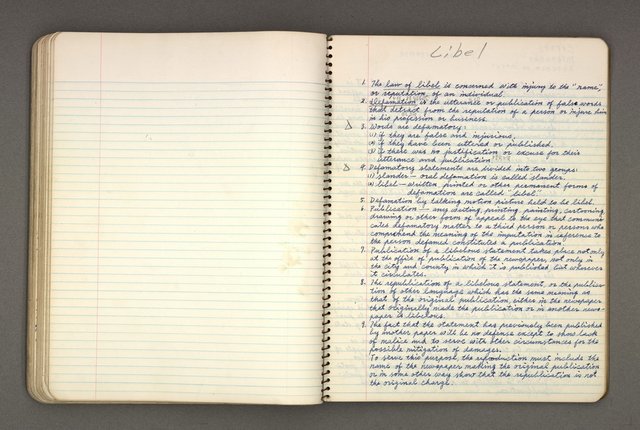 Libel
1. The law of libel is concerned with injury to the "name",
or reputation, of an individual.
2. Defamation is the utterance or publication of false words
that detract from the reputation of a person or injure him
in his profession or business.
3. Words are defamatory:
(1) if they are false and injurious,
(2) if they have been uttered or published,
(3) if there was no justification or excuse for their
utterance and publication.
4. Defamatory statements are divided into two groups:
(1) slander — oral defamation is called slander.
(2) libel — written, printed or other permanent forms of
defamation are called "libel."
5. Defamation by talking motion picture held to be libel.
6. Publication — any writing, printing, painting, cartooning,
drawing or other form of appeal to the eye that communi-
cates defamatory matter to a third person or persons who
comprehend the meaning of the imputation in reference to
the person defamed constitutes a publication.
7. Publication of a libelous statement takes place not only
at the office of publication of the newspaper, not only in
the city and county in which it is published, but wherever
it circulates.
8. The republication of a libelous statement, or the publica-
tion of other language which has the same meaning as
that of the original publication, either in the newspaper
that originally made the publication or in another news-
paper is libelous.
9. The fact that the statement has previously been published
by another paper will be no defense except to show lack
of malice and to serve with other circumstances for the
possible mitigation of damages.
To serve this purpose, the reproduction must include the
name of the newspaper making the original publication
or in some other way show that the republication is not
the original charge.